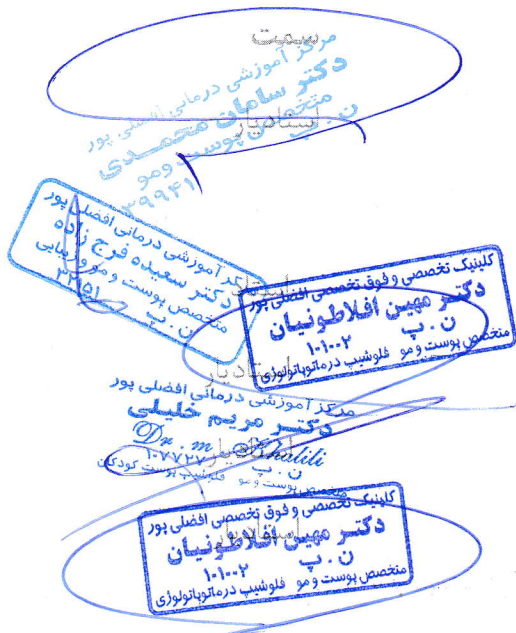 سمت
مرکز آموزشی درمانی افضلی پور
دکتر سامان محمدی
استادیار
متخصص پوست و مو
ن . پ
۳۹۹۴۱
مرکز آموزشی درمانی افضلی پور
دکتر سعیده فرج زاده
متخصص پوست و مو و زیبایی
ن . پ
کلینیک تخصصی و فوق تخصصی افضلی پور
دکتر مهین افلاطونیان
ن . پ
۱۰۱۰۰۲
متخصص پوست و مو فلوشیپ درماتوپاتولوژی
استادیار
مرکز آموزشی درمانی افضلی پور
دکتر مریم خلیلی
Dr. m Khalili
استادیار
۱۰۷۷۲۷
ن . پ
متخصص پوست و مو فلوشیپ پوست کودکان
کلینیک تخصصی و فوق تخصصی افضلی پور
دکتر مهین افلاطونیان
استادیار
ن . پ
۱۰۱۰۰۲
متخصص پوست و مو فلوشیپ درماتوپاتولوژی